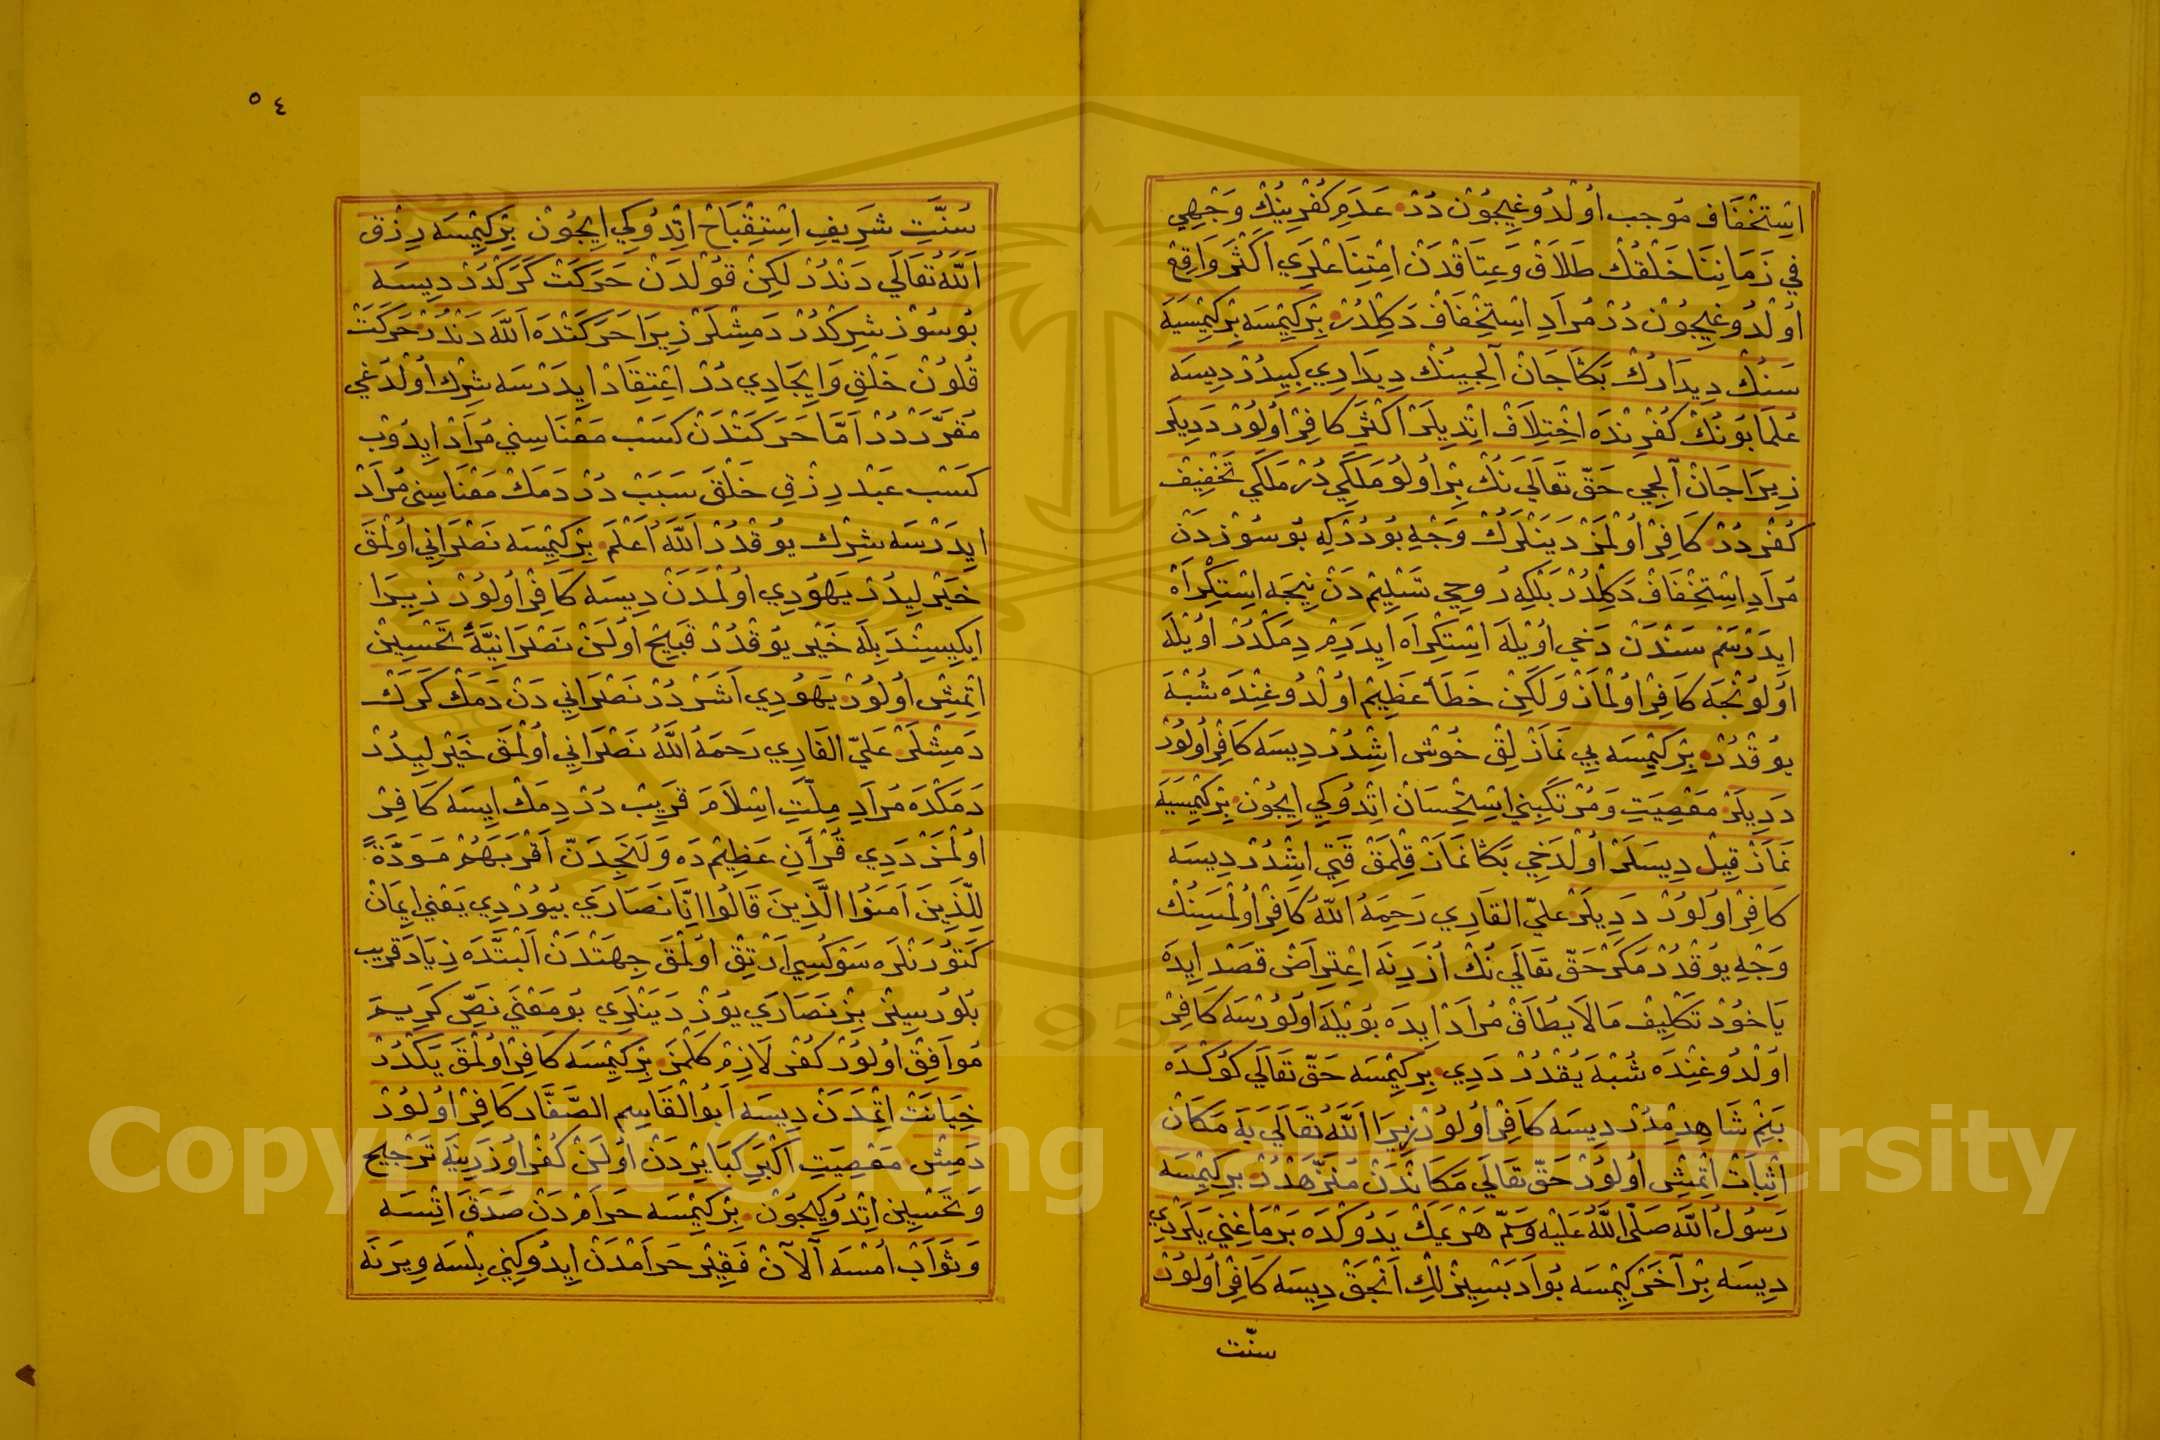 اِسْتِخْفَافِ مُوجِب اُولْدُوغِيچُون دُرْ عَدَمِ كُفْرِينِكْ وَجْهِي
فِي زَمَانِنَا خَلْقُكْ طَلَاقْ وَعِتَاقْدَنْ اِمْتِنَاعْلَرِي اَكْثَرِ وَاقِعْ
اُولْدُوغِيچُون دُرْ مُرَادِ اِسْتِخْفَافْ دَكِلْدُرْ بِرْكِيمْسَه بِرْكِيمْسَيَه
سَنُكْ دِيدَارُكْ بَكَا جَانْ آلِجِينُكْ دِيدَارِي كِبِيدُرْ دِيسَه
عُلَمَا بُونُكْ كُفْرِنْدَه اِخْتِلَافْ اِتْدِيلَرْ اَكْثَرِ كَافِرْ اُولُورْ دَدِيلَرْ
زِيرَا جَانْ آلِجِي حَقّ تَعَالَي نُكْ بِرْ اُولُو مَلَكِي دُرْ مَلَكِي تَخْفِيفْ
كُفْرْ دُرْ كَافِرْ اُولْمَزْ دَيَنْلَرُكْ وَجْهِ بُودُرْ كِه بُو سُوزْدَنْ
مُرَادِ اِسْتِخْفَافْ دَكِلْدُرْ بَلْكِه رُوحِي تَسْلِيمْ دَنْ نِيجَه اِسْتِكْرَاهْ
اِيدَرْسَمْ سَنْدَنْ دَخِي اُويْلَه اِسْتِكْرَاه اِيدَرِمْ دِمَكْدُرْ اُويْلَه
اُولُونْجَه كَافِرْ اُولْمَازْ وَلَكِنْ خَطَأ عَظِيمْ اُولْدُوغِنْدَه شُبْهَ
يُوقْدُرْ بِرْكِيمْسَه بِي نَمَازْ لِقْ خُوشْ اِشْدُرْ دِيسَه كَافِرْ اُولُورْ
دَدِيلَرْ مَعْصِيَتِ وَمُرْتَكِبِنِي اِسْتِحْسَانْ اِتْدُوكِي اِيچُونْ بِرْكِيمْسَيَه
نَمَازْ قِيلْ دِيسَلَرْ اُولْدَخِي بَكَا نَمَازْ قِلْمَقْ قَتِي اِشْدُرْ دِيسَه
كَافِرْ اُولُورْ دَدِيلَرْ عَلِيّ القَارِي رَحِمَهُ اللّهُ كَافِرْ اُولْمَسِنُكْ
وَجْهِ يُوقْدُرْ مَكَرْ حَقّ تَعَالَي نُكْ اُزَرِنَه اِعْتِرَاضْ قَصْد اِيدَه
يَاخُودْ تَكْلِيفْ مَالَا يُطَاقْ مُرَادْ اِيدَه بُويْلَه اُولُورْسَه كَافِرْ
اُولْدُوغِنْدَه شُبْهَ يُقْدُرْ دَدِي بِرْكِيمْسَه حَقّ تَعَالَي كُوكْدَه
بَنِمْ شَاهِدِمْدُرْ دِيسَه كَافِرْ اُولُورْ زِيرَا اَللّهُ تَعَالَي يَه مَكَانْ
اِثْبَاتْ اِتْمِشْ اُولُورْ حَقّ تَعَالَي مَكَانْدَنْ مُنَزَّهْدُرْ بِرْكِيمْسَه
رَسُولُ اللّه صَلَّى اللّهُ عَلَيْهِ وَسَلَّمْ هَرْ يَمَكْ يَدُوكْدَه بَرْمَاغِنِي يَلَرْدِي
دِيسَه بِرْ آخَرْ كِيمْسَه بُو اَدَبْسِيزْلِكْ اَنْجَقْ دِيسَه كَافِرْ اُولُورْ
سنّت
٥٤
سُنَّتِ شَرِيفِ اِسْتِقْبَاحْ اِتْدُوكِي اِيچُونْ بِرْكِيمْسَه رِزْق
اَللّه تَعَالَي دَنْدُرْ لَكِنْ قُولْدَنْ حَرَكَتْ كَرَكْدُرْ دِيسَه
بُو سُوزْ شِرِكْدُرْ دَمِشْلَرْ زِيرَا حَرَكَتْدَه اَللّه دَنْدُرْ حَرَكَتْ
قُلُونْ خَلْقِ وَاِيجَادِي دُرْ اِعْتِقَادْ اِيدَرْسَه شِرْك اُولْدُغِي
مُقَرَّرَدُرْ اَمَّا حَرَكَتْدَنْ كَسْب مَعْنَاسِنِي مُرَادْ اِيدُوبْ
كَسْب عَبْد رِزْقِ خَلْقَ سَبَبْ دُرْ دَمَكْ مَعْنَاسِنِي مُرَادْ
اِيدَرْسَه شِرْك يُوقْدُرْ اَللّهُ اَعْلَمْ بِرْكِيمْسَه نَصْرَانِي اُولْمَقْ
خَيْرْلِيدُرْ يَهُودِي اُولْمَدَنْ دِيسَه كَافِرْ اُولُورْ زِيرَا
اِيكِيسِنْدَ بِلَه خَيْر يُوقْدُرْ قَبِيحْ اُولَنْ نَصْرَانِيَّةَ تَحْسِينْ
اِتْمِشْ اُولُورْ يَهُودِي اَشَرْ دُرْ نَصْرَانِي دَنْ دَمَكْ كَرَكْ
دَمِشْلَرْ عَلِيّ القَارِي رَحِمَهُ اللّهُ نَصْرَانِي اُولْمَقْ خَيْرْلِيدُرْ
دَمَكْدَه مُرَادِ مِلَّتِ اِسْلَامَ قَرِيبْ دُرْ دِمَكْ اِيسَه كَافِرْ
اُولْمَزْ دَدِي قُرْأَنِ عَظِيمْدَه وَلَتَجِدَنَّ اَقْرَبَهُمْ مَوَدَّةً
لِلَّذِينَ اَمَنُوا الَّذِينَ قَالُوا اِنَّا نَصَارَي بُيُورْدِي يَعْنِي اِيمَانْ
كَتُورَنْلَرَه سَوْكُسِي اَرْتِقْ اُولْمَقْ جِهَتْدَنْ اَلْبَتَّدَه زِيَادَ قَرِيب
بُلُورْسِيزْ بِزْ نَصَارَي يُوزْ دَيَنْلَرِي بُو مَعْنَي نَصِّ كَرِيمَ
مُوَافِقْ اُولُورْ كُفْر لَازِمْ كَلْمَزْ بِرْكِيمْسَه كَافِرْ اُولْمَقْ يَكْدُرْ
خِيَانَتْ اِتْمَدَنْ دِيسَه اَبُو الْقَاسِمِ الصَّفَّار كَافِرْ اُولُورْ
دَمِشْ مَعْصِيَتِ اَكْبَرِ كَبَايِرْدَنْ اُولَنْ كُفْرْ اُوزَرِينَه تَرْجِيح
وَتَحْسِين اِتْدُوكِيچُونْ بِرْكِيمْسَه حَرَامْ دَنْ صَدَقَ اِتْسَه
وَثَوَابْ اُمْسَه آلَانْ فَقِيرْ حَرَامْدَنْ اِيدُوكِنِي بِلْسَه وِيرَنَه
Copyright © King Saud University
195